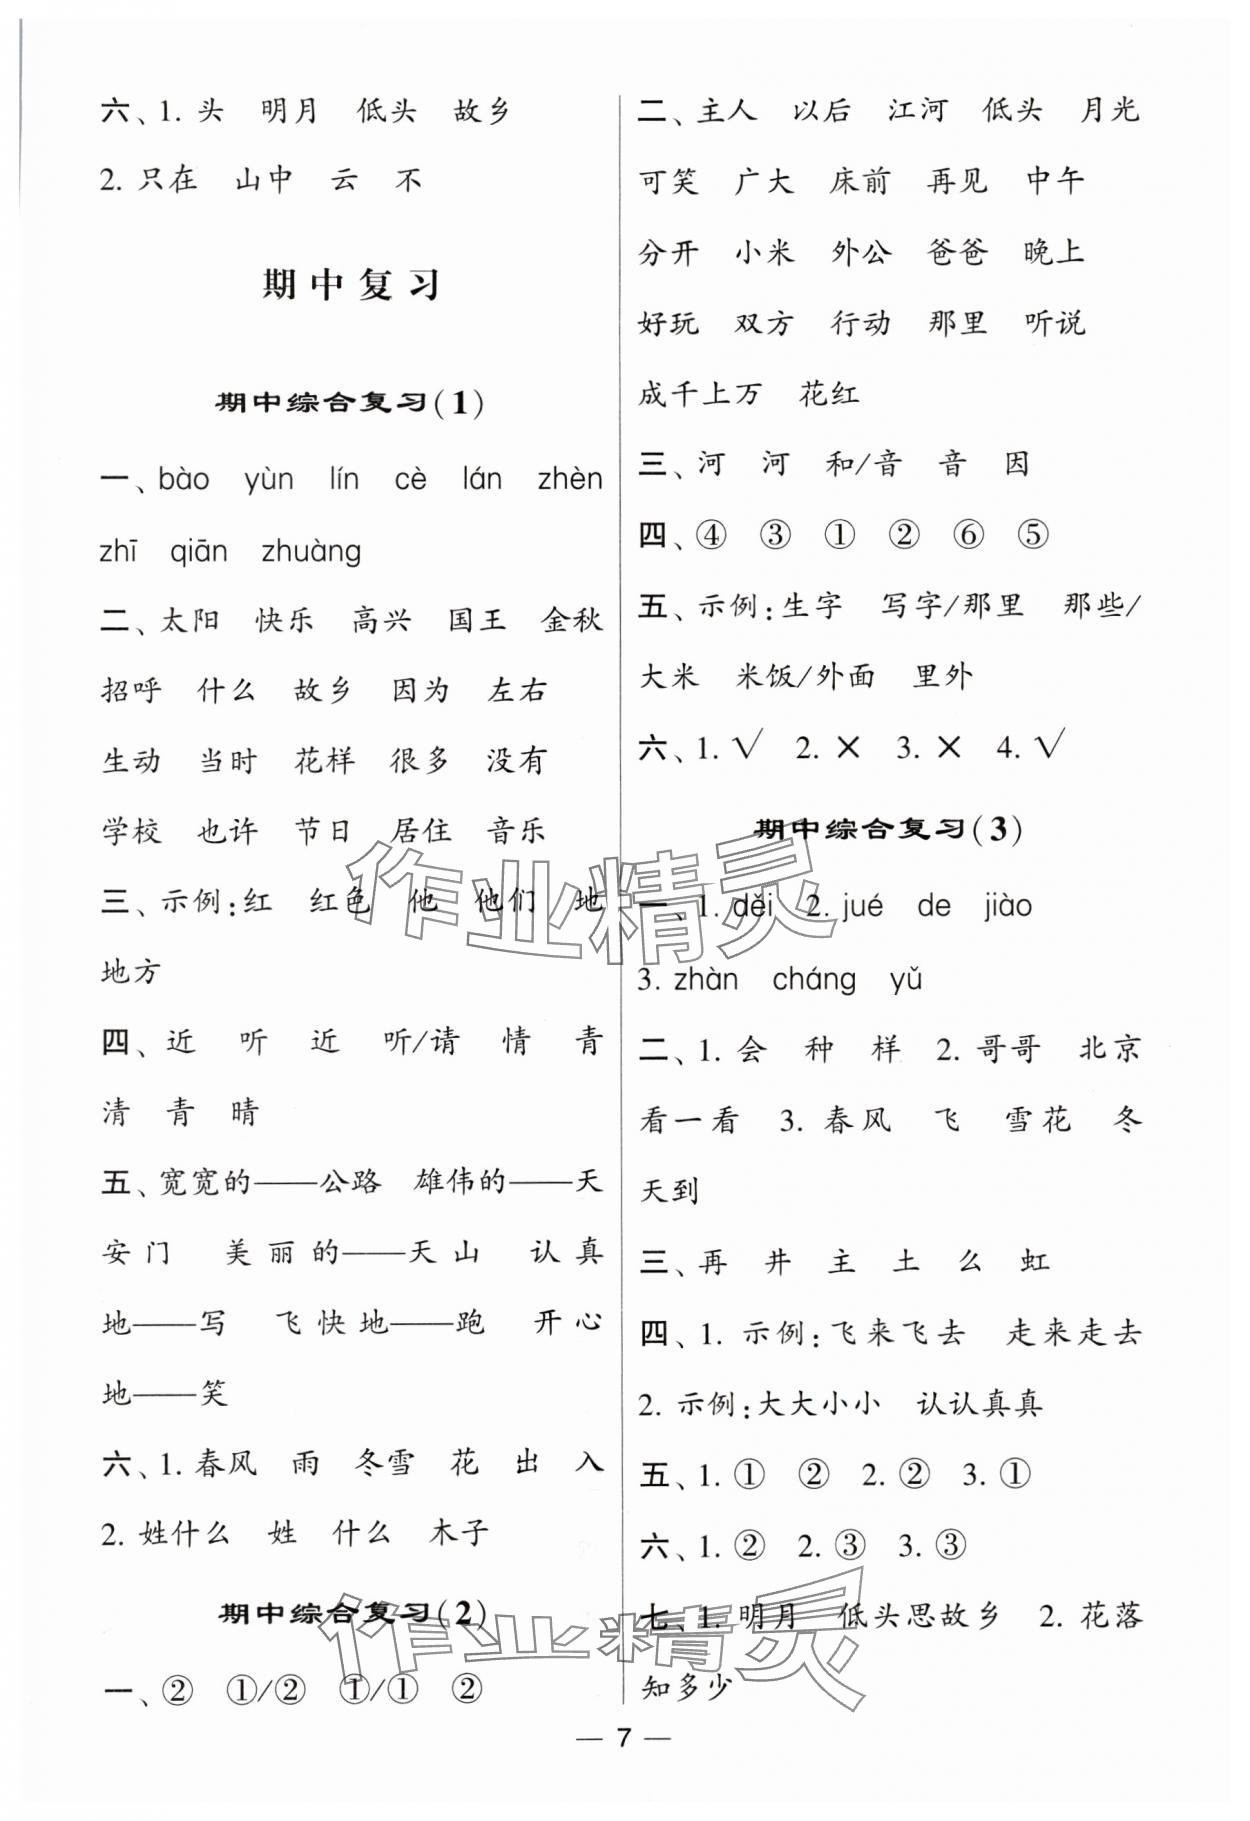 六、1. 头 明月 低头 故乡
2. 只在 山中 云 不
期中复习
期中综合复习(1)
一、bào yùn lín cè lán zhèn
zhī qiān zhuàng
二、太阳 快乐 高兴 国王 金秋
招呼 什么 故乡 因为 左右
生动 当时 花样 很多 没有
学校 也许 节日 居住 音乐
三、示例:红 红色 他 他们 地
地方
四、近 听 近 听/请 情 青
清 青 晴
五、宽宽的——公路 雄伟的——天
安门 美丽的——天山 认真
地——写 飞快地——跑 开心
地——笑
六、1. 春风 雨 冬雪 花 出 入
2. 姓什么 姓 什么 木子
期中综合复习(2)
一、② ①/② ①/① ②
二、主人 以后 江河 低头 月光
可笑 广大 床前 再见 中午
分开 小米 外公 爸爸 晚上
好玩 双方 行动 那里 听说
成千上万 花红
三、河 河 和/音 音 因
四、④ ③ ① ② ⑥ ⑤
五、示例:生字 写字/那里 那些/
大米 米饭/外面 里外
六、1. √ 2. × 3. × 4. √
期中综合复习(3)
一、1. děi 2. jué de jiào
3. zhàn cháng yǔ
二、1. 会 种 样 2. 哥哥 北京
看一看 3. 春风 飞 雪花 冬
天到
三、再 井 主 土 么 虹
四、1. 示例:飞来飞去 走来走去
2. 示例:大大小小 认认真真
五、1. ① ② 2. ② 3. ①
六、1. ② 2. ③ 3. ③
七、1. 明月 低头思故乡 2. 花落
知多少
— 7 —
作业精灵
作业精灵